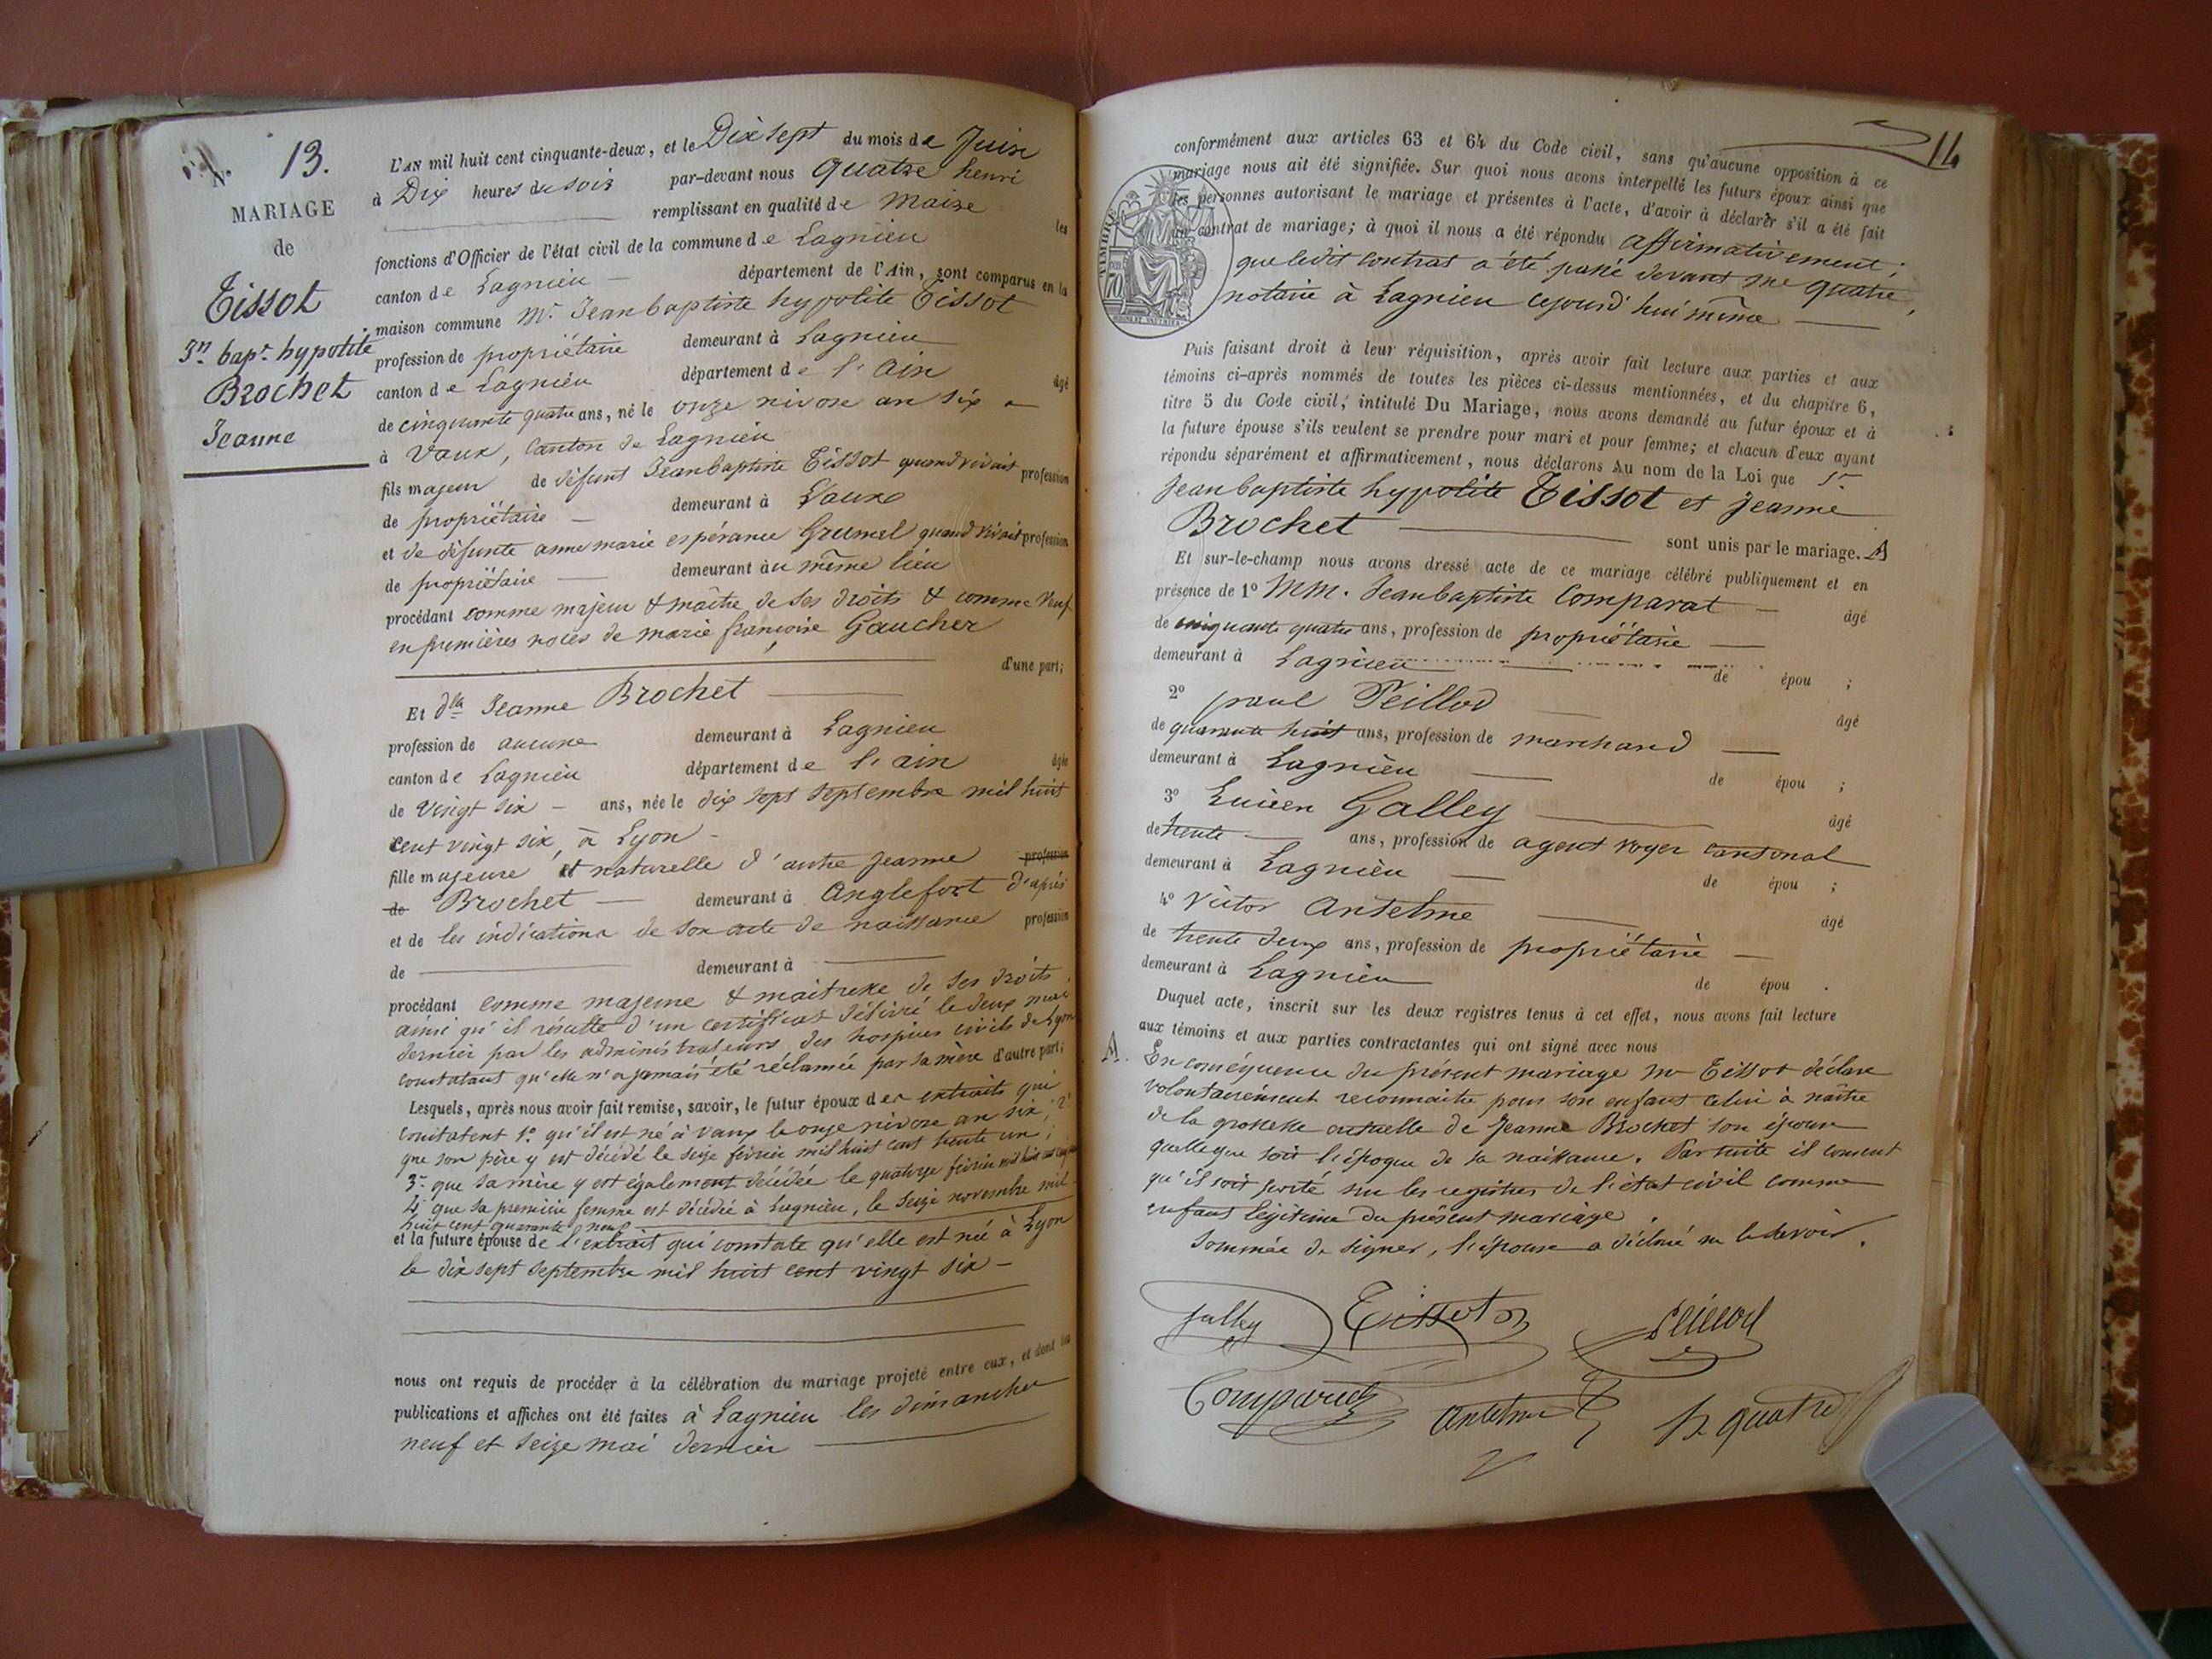 N. 13.
MARIAGE
de
Tissot
Jn bapt hypolite
Brochet
Jeanne
L'AN mil huit cent cinquante-deux, et le Dix sept du mois de Juin
à Dix heures du soir par-devant nous Quatre henri
remplissant en qualité de Maire les
fonctions d'Officier de l'état civil de la commune de Lagnieu
canton de Lagnieu département de l'Ain, sont comparus en la
maison commune Mr. Jeanbaptiste hypolite Tissot
profession de propriétaire demeurant à Lagnieu
canton de Lagnieu département de l'Ain âgé
de cinquante quatre ans, né le onze nivose an six
à Vaux, Canton de Lagnieu
fils majeur de défunt Jeanbaptiste Tissot quand vivait profession
de propriétaire demeurant à Vaux
et de défunte anne marie espérance Grumel quand vivait profession
de propriétaire demeurant au même lieu
procédant comme majeur & maître de ses droits & comme veuf
en premières noces de marie françoise Gaucher
d'une part;
Et dlle Jeanne Brochet
profession de aucune demeurant à Lagnieu
canton de Lagnieu département de l'ain âgée
de vingt six ans, née le dix sept septembre mil huit
cent vingt six, à Lyon
fille majeure et naturelle d'autre Jeanne profession
de Brochet demeurant à Anglefort d'après
et de les indications de son acte de naissance profession
de demeurant à
procédant comme majeure & maitresse de ses droits
ainsi qu'il résulte d'un certificat délivré le deux mai
dernier par les administrateurs des hospices civils de Lyon
constatant qu'elle n'a jamais été réclamée par sa mère d'autre part;
Lesquels, après nous avoir fait remise, savoir, le futur époux des extraits qui
constatent 1º qu'il est né à Vaux le onze nivose an six; 2º
que son père y est décédé le seize février mil huit cent trente un;
3º que sa mère y est également décédée le quatorze février mil huit cent
4º que sa première femme est décédée à Lagnieu, le seize novembre mil
huit cent quarante neuf
et la future épouse de l'extrait qui constate qu'elle est née à Lyon
le dix sept septembre mil huit cent vingt six
nous ont requis de procéder à la célébration du mariage projeté entre eux, et dont les
publications et affiches ont été faites à Lagnieu les dimanches
neuf et seize mai dernier
14
conformément aux articles 63 et 64 du Code civil, sans qu'aucune opposition à ce
mariage nous ait été signifiée. Sur quoi nous avons interpellé les futurs époux ainsi que
les personnes autorisant le mariage et présentes à l'acte, d'avoir à déclarer s'il a été fait
un contrat de mariage; à quoi il nous a été répondu affirmativement;
que ledit contrat a été passé devant Me quatre,
notaire à Lagnieu cejourd'hui même
TIMBRE
Puis faisant droit à leur réquisition, après avoir fait lecture aux parties et aux
témoins ci-après nommés de toutes les pièces ci-dessus mentionnées, et du chapitre 6,
titre 5 du Code civil, intitulé Du Mariage, nous avons demandé au futur époux et à
la future épouse s'ils veulent se prendre pour mari et pour femme; et chacun d'eux ayant
répondu séparément et affirmativement, nous déclarons Au nom de la Loi que Sr
Jeanbaptiste hypolite Tissot et Jeanne
Brochet sont unis par le mariage. A
Et sur-le-champ nous avons dressé acte de ce mariage célébré publiquement et en
présence de 1º MM. Jeanbaptiste Comparat âgé
de cinquante quatre ans, profession de propriétaire
demeurant à Lagnieu de épou ;
2º paul Peillod âgé
de quarante huit ans, profession de marchand
demeurant à Lagnieu de épou ;
3º Lucien Galley âgé
de trente ans, profession de agent voyer cantonal
demeurant à Lagnieu de épou ;
4º Victor Antelme âgé
de trente deux ans, profession de propriétaire
demeurant à Lagnieu de épou .
Duquel acte, inscrit sur les deux registres tenus à cet effet, nous avons fait lecture
aux témoins et aux parties contractantes qui ont signé avec nous
A. En conséquence du présent mariage mr Tissot déclare
volontairement reconnaitre pour son enfant celui à naître
de la grossesse actuelle de Jeanne Brochet son épouse
quelle que soit l'époque de sa naissance. Par suite il consent
qu'il soit porté sur les registres de l'état civil comme
enfant légitime du présent mariage.
Sommée de signer, l'épouse a déclaré ne le savoir.
Galley Tissot Peillod
Comparat Antelme h quatre